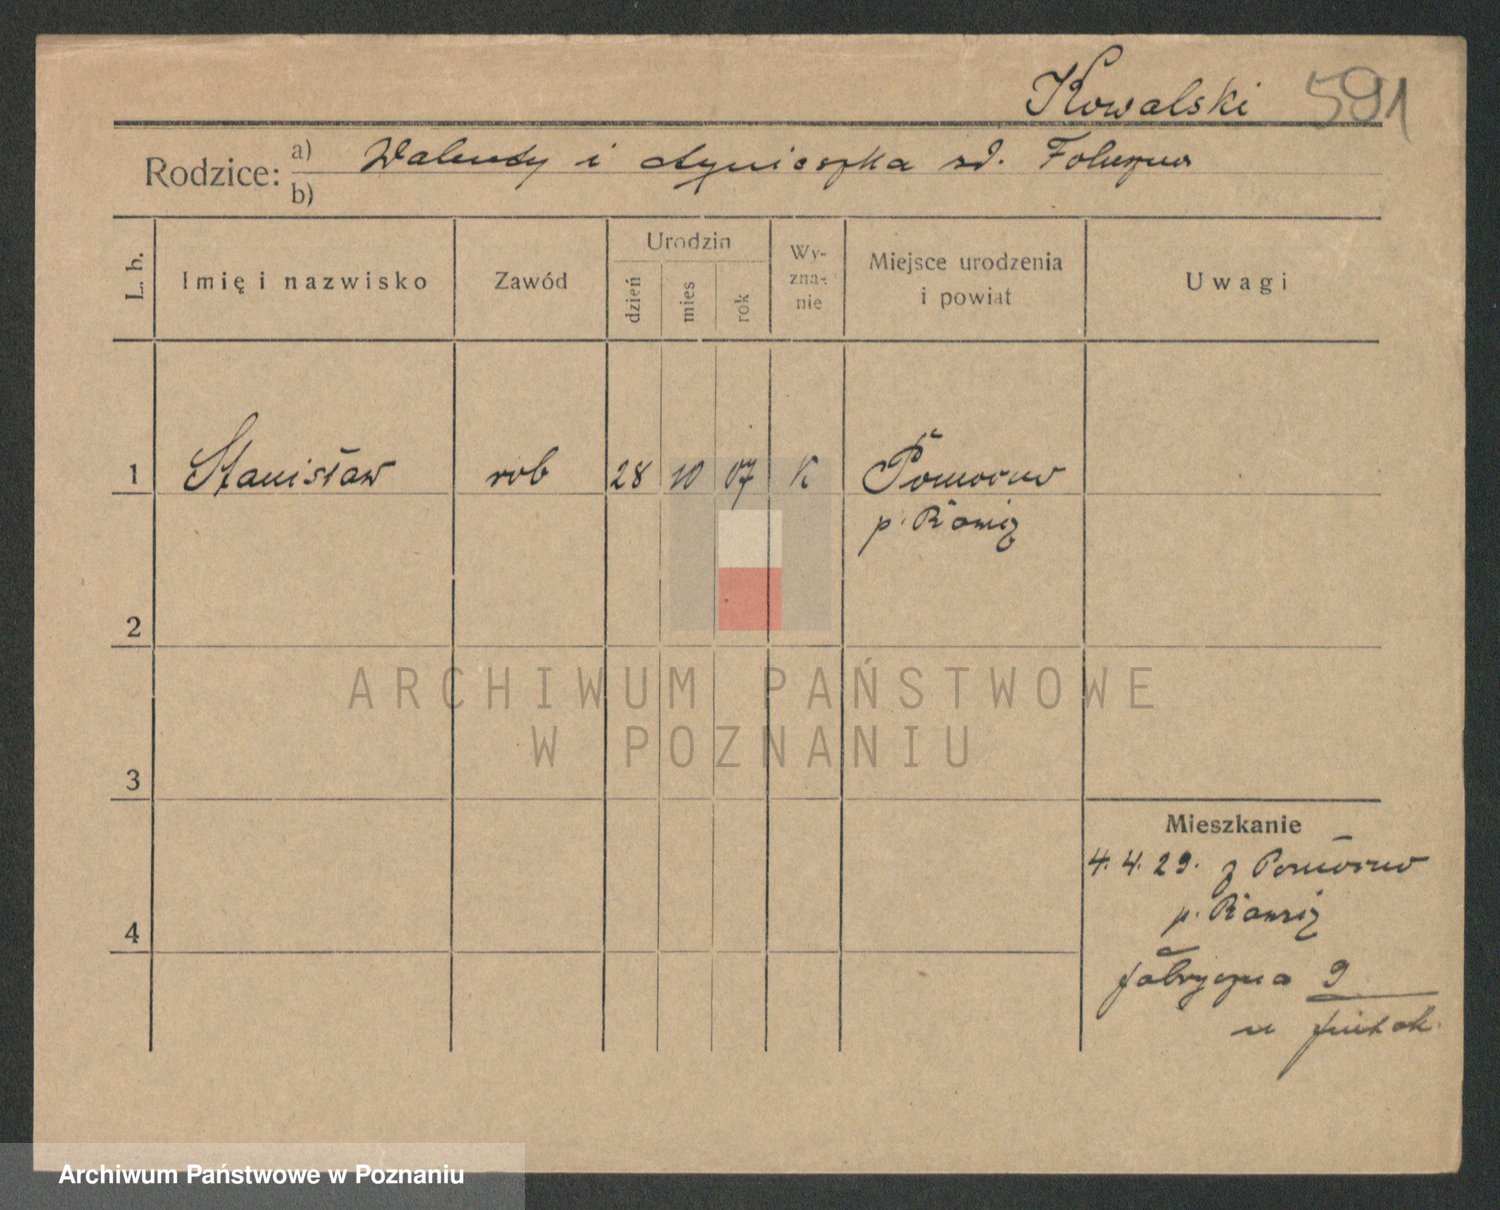 Kowalski 591
Rodzice: a) Walenty i Agnieszka zd.
b)
L. b.
Imię i nazwisko
Zawód
Urodzin
dzień
mies
rok
Wy-
zna-
nie
Miejsce urodzenia
i powiat
Uwagi
1 Stanisław rob 28 10 07 K
p.
2
3
4
Mieszkanie
4.4.29. z
p.
fabryczna 9
u
ARCHIWUM PAŃSTWOWE
W POZNANIU
Archiwum Państwowe w Poznaniu